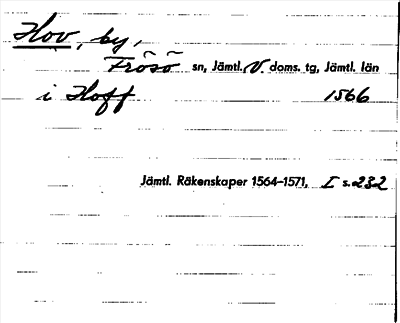 Hov, by,
Frösö sn, Jämtl. V. doms. tg, Jämtl. län
i Hoff 1566
Jämtl. Räkenskaper 1564–1571, I s. 232